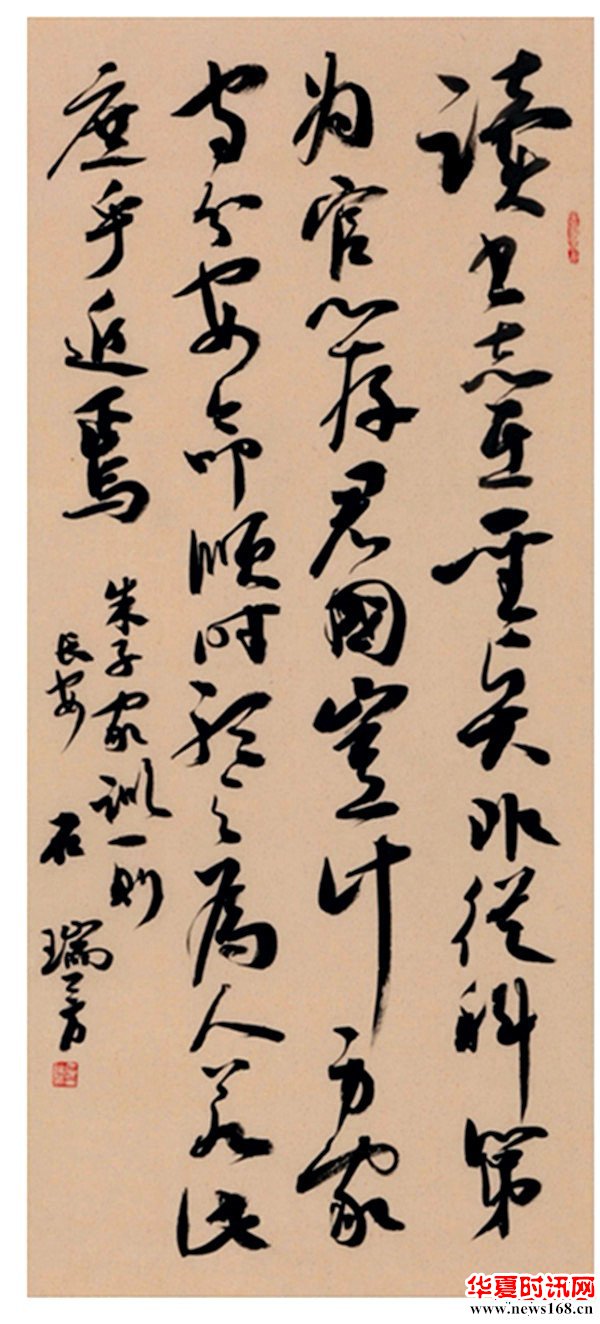 读书志在聖贤非徒科第
为官心存君國豈计身家
守分安命顺时聽天為人若此
庶乎近焉
朱子家训一则
长安 石瑞芳
华夏时讯网
www.news168.cn